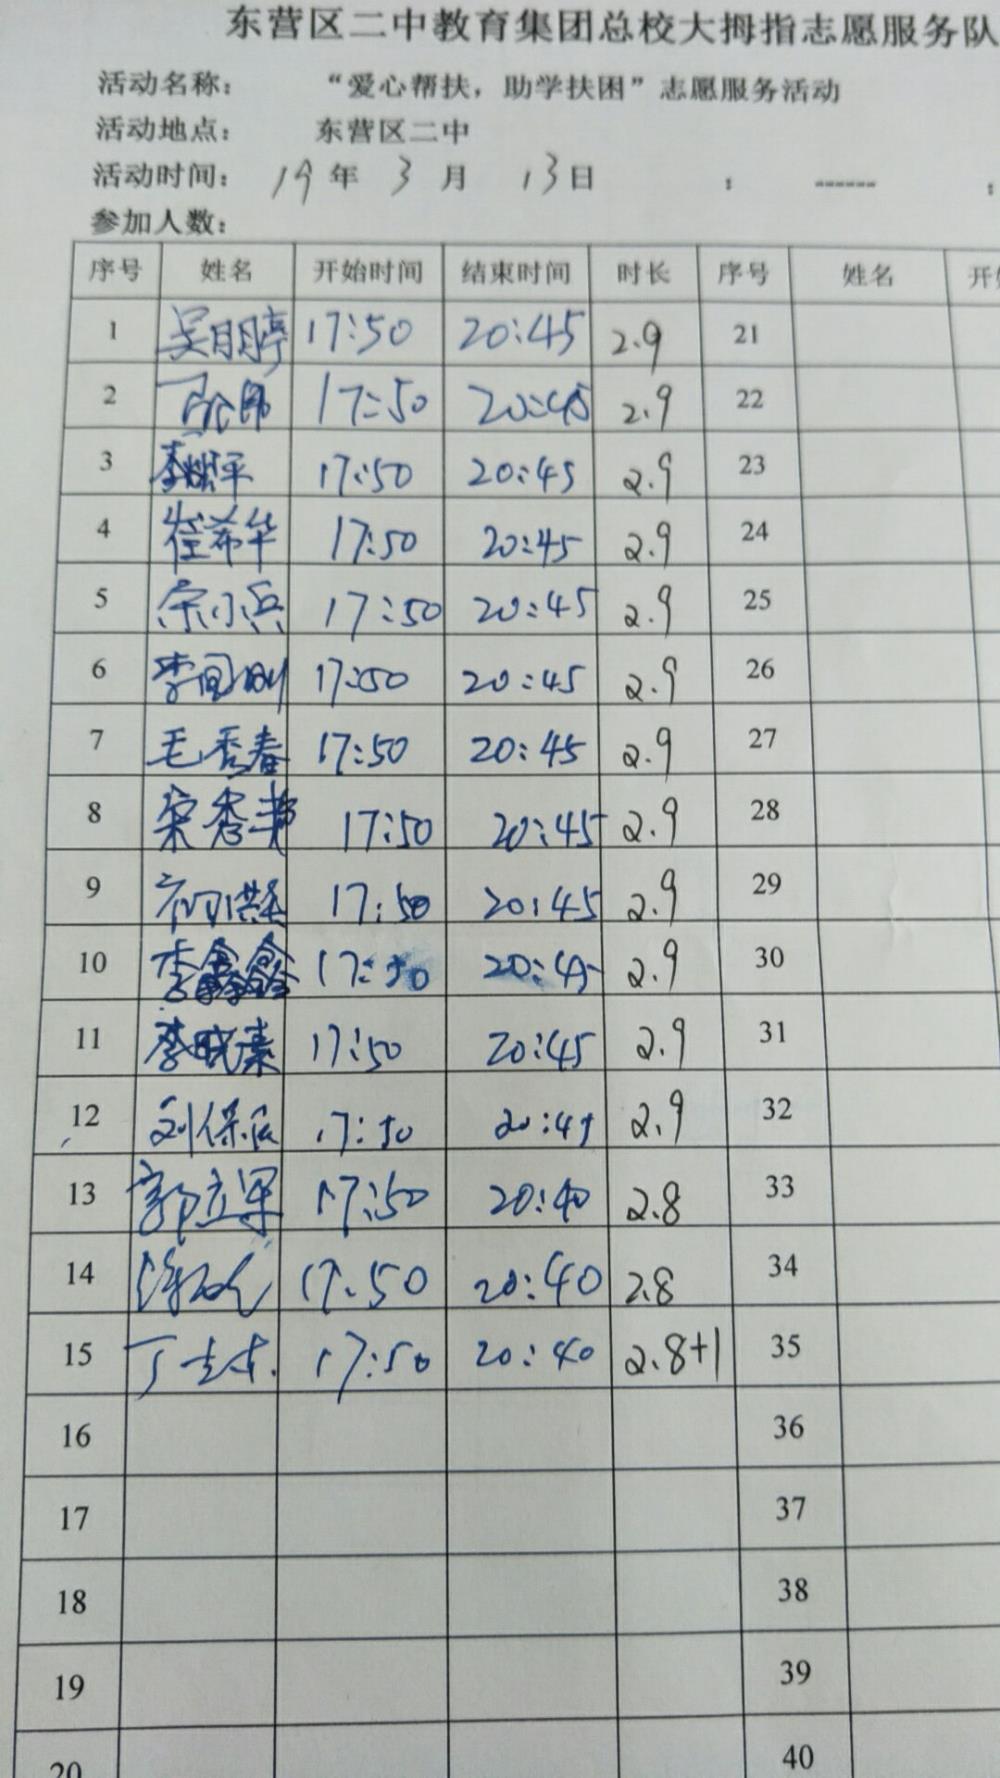 东营区二中教育集团总校大拇指志愿服务队
活动名称： “爱心帮扶，助学扶困”志愿服务活动
活动地点： 东营区二中
活动时间： 19年 3月 13日 : ------ :
参加人数：
序号 姓名 开始时间 结束时间 时长 序号 姓名 开始
1 吴明婷 17:50 20:45 2.9 21
2 17:50 20:45 2.9 22
3 李 平 17:50 20:45 2.9 23
4 崔希华 17:50 20:45 2.9 24
5 宗小兵 17:50 20:45 2.9 25
6 李国刚 17:50 20:45 2.9 26
7 毛秀春 17:50 20:45 2.9 27
8 宋秀 17:50 20:45 2.9 28
9 17:50 20:45 2.9 29
10 李鑫鑫 17:50 20:45 2.9 30
11 李晓 17:50 20:45 2.9 31
12 刘保 17:50 20:45 2.9 32
13 郭立军 17:50 20:40 2.8 33
14 17:50 20:40 2.8 34
15 丁 17:50 20:40 2.8+1 35
16 36
17 37
18 38
19 39
20 40